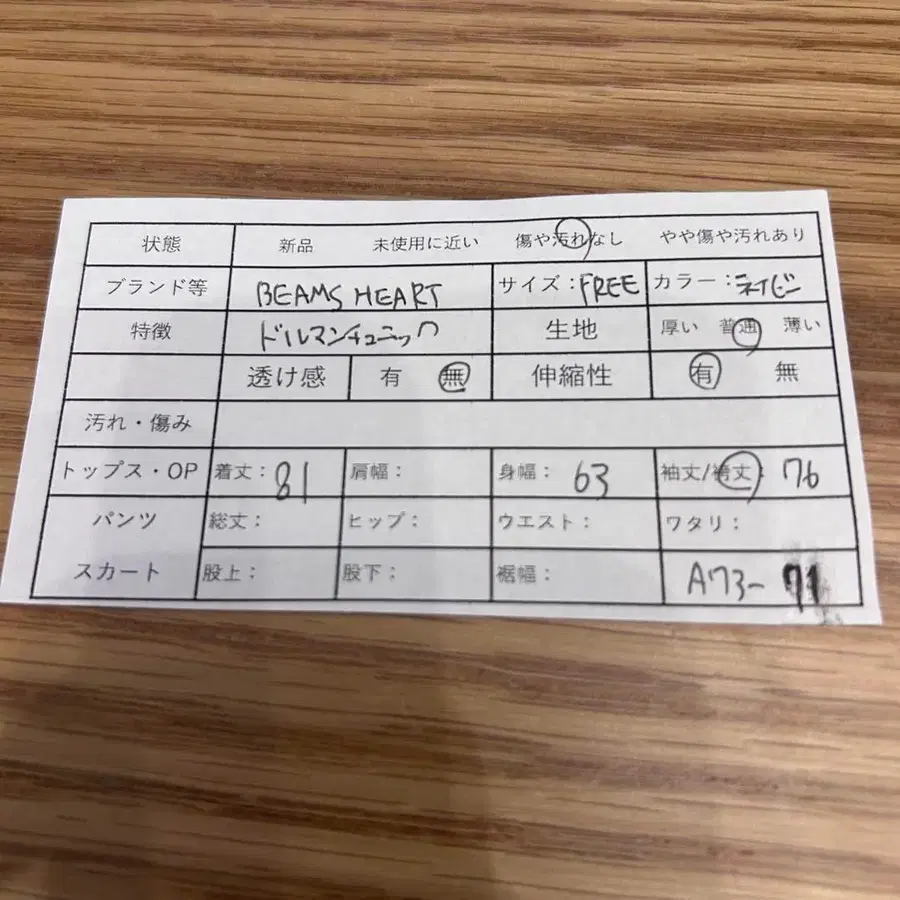 状態 新品 未使用に近い 傷や汚れなし やや傷や汚れあり
ブランド等 BEAMS HEART サイズ：FREE カラー：ネイビー
特徴 ドルマンチュニック 生地 厚い 普通 薄い
透け感 有 無 伸縮性 有 無
汚れ・傷み
トップス・OP 着丈：81 肩幅： 身幅：63 袖丈/裄丈：76
パンツ 総丈： ヒップ： ウエスト： ワタリ：
スカート 股上： 股下： 裾幅： A73-71